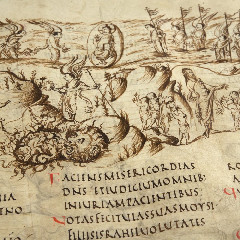 FACIENS MISERICORDIAS
DNS ETIUDICIUM OMNIB:
INIURIAM PACIENTIBUS
NOTAS FECIT UIAS SUAS MOYSI
FILIIS ISRAHEL UOLUTATES